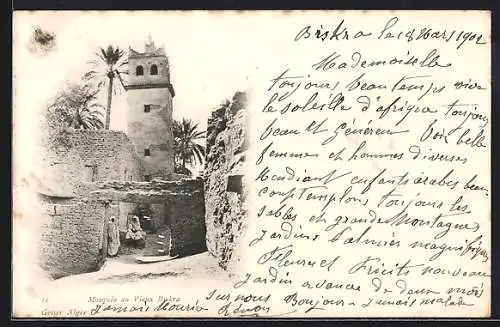 Biskra le 18 Mars 1902
Mademoiselle
toujours beau temps vive
le soleille d'afrique toujours
beau et Généreux Voir belle
femmes et hommes diverses
Mendiant enfants arabes beau
contemplons toujours les
sables et grande Montagnes
jardins Palmiers magnifique
Fleures et Fruits nouveau
jardin avance de deux mois
sur nous Bonjour jamais malade
jamais Mourir
11 Mosquée au Vieux Biskra
Geiser Alger